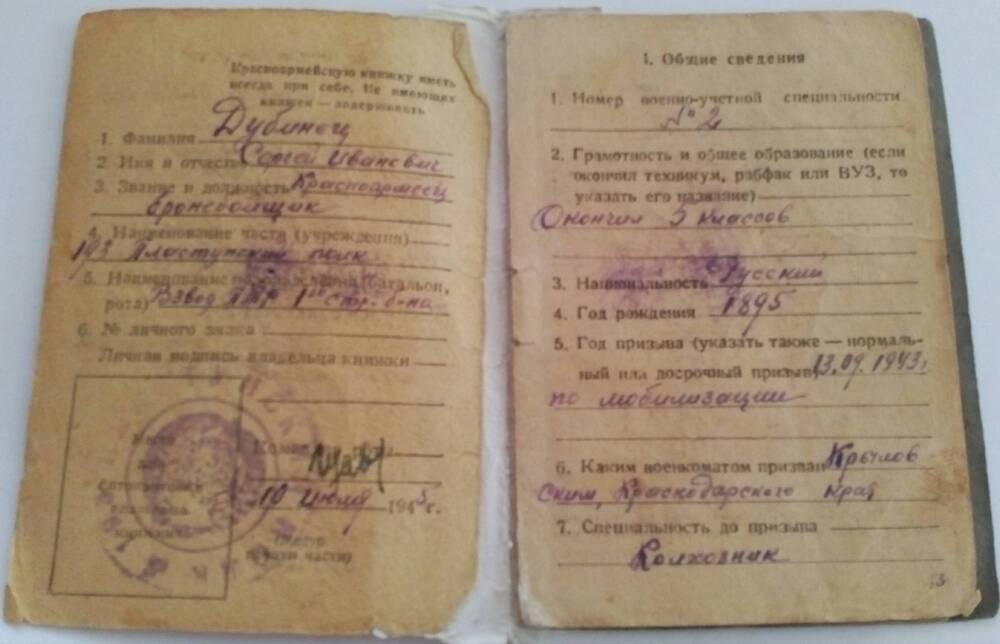 Красноармейскую книжку иметь
всегда при себе. Не имеющих
книжек — задерживать
1. Фамилия Дубинец
2. Имя и отчество Сергей Иванович
3. Звание и должность Красноармеец
бронебойщик
4. Наименование части (учреждения)
193 Пластунский полк
5. Наименование подразделения (батальон,
рота) Взвод ПТР 1го стр. б-на
6. № личного знака
Личная подпись владельца книжки
Место
для
фотокарточки
владельца
книжки
10 июля 1945 г.
(место
печати части)
1. Общие сведения
1. Номер военно-учетной специальности
№ 2
2. Грамотность и общее образование (если
окончил техникум, рабфак или ВУЗ, то
указать его название)
Окончил 3 классов
3. Национальность Русский
4. Год рождения 1895
5. Год призыва (указать также — нормаль-
ный или досрочный призыв) 13.09.1943г
по мобилизации
6. Каким военкоматом призван Крылов
ским, Краснодарского края
7. Специальность до призыва
Колхозник
3